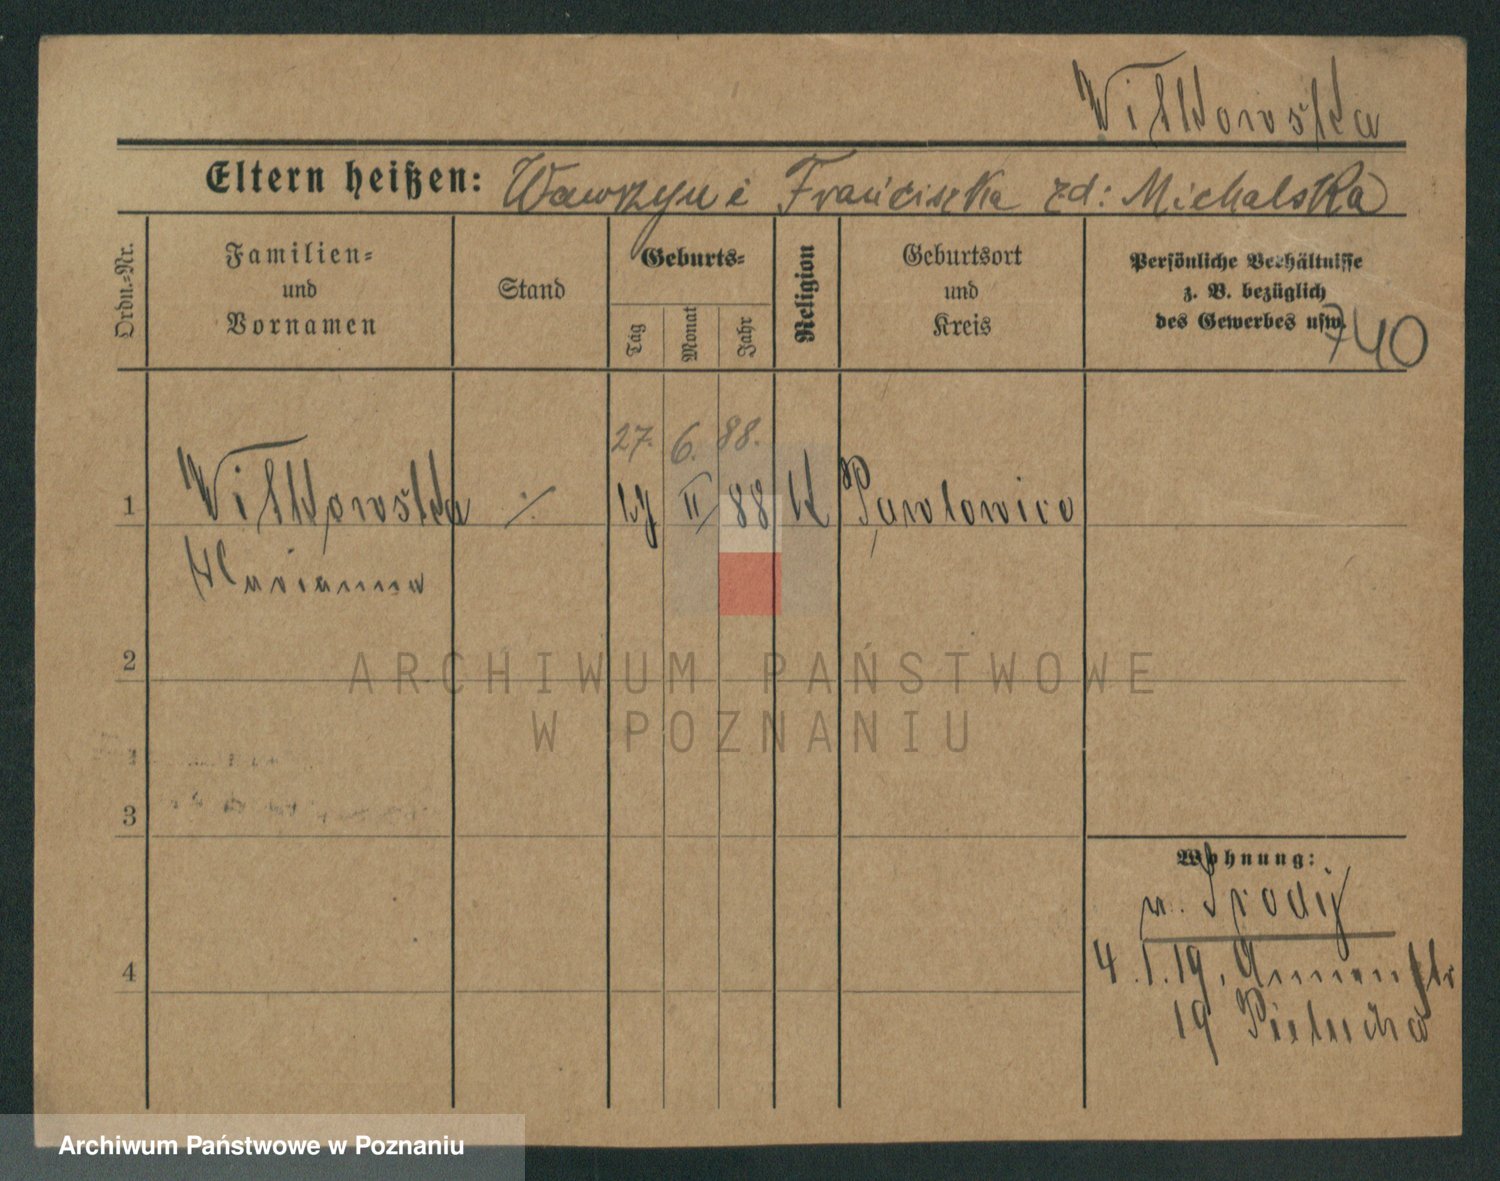 Witkowska
Eltern heißen: Wawrzyn i Franciszka zd: Michalska
Ordn.-Nr.
Familien-
und
Vornamen
Stand
Geburts-
Tag
Monat
Jahr
Religion
Geburtsort
und
Kreis
Persönliche Verhältnisse
z. B. bezüglich
des Gewerbes usw.
740
27. 6. 88.
1 Witkowska II 88 K Pawlowice
Marianna
2
3
4
Wohnung:
4.1.19. Annenstr
19
ARCHIWUM PAŃSTWOWE
W POZNANIU
Archiwum Państwowe w Poznaniu